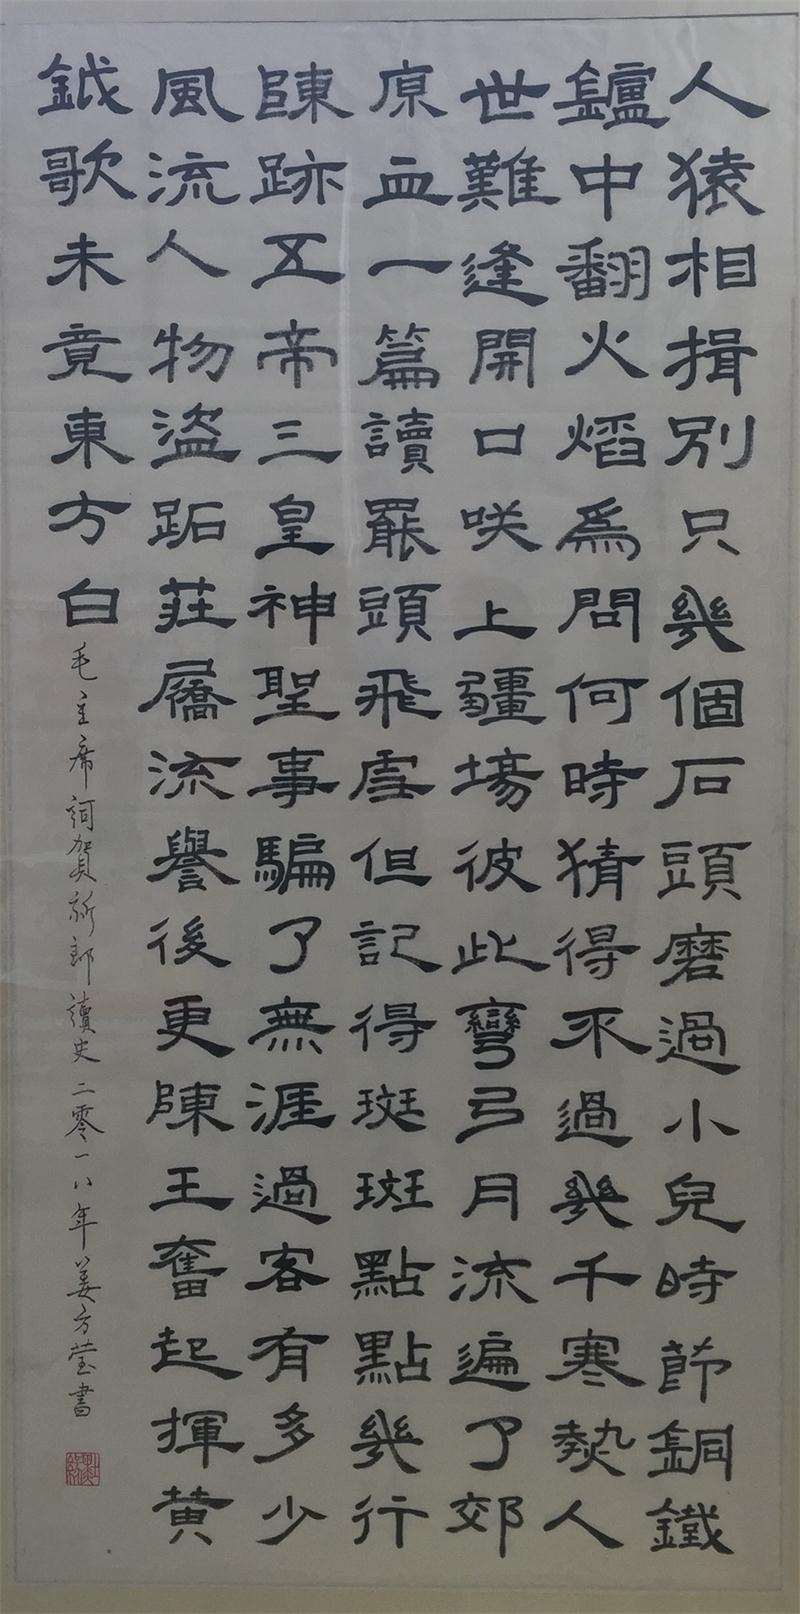 人猿相揖別只幾個石頭磨過小兒時節銅鐵
鑪中翻火焰爲問何時猜得不過幾千寒熱人
世難逢開口咲上疆場彼此彎弓月流遍了郊
原血一篇讀罷頭飛雪但記得斑斑點點幾行
陳跡五帝三皇神聖事騙了無涯過客有多少
風流人物盜跖莊屩流譽後更陳王奮起揮黃
鉞歌未竟東方白
毛主席詞賀新郎讀史二零一八年姜方莹書